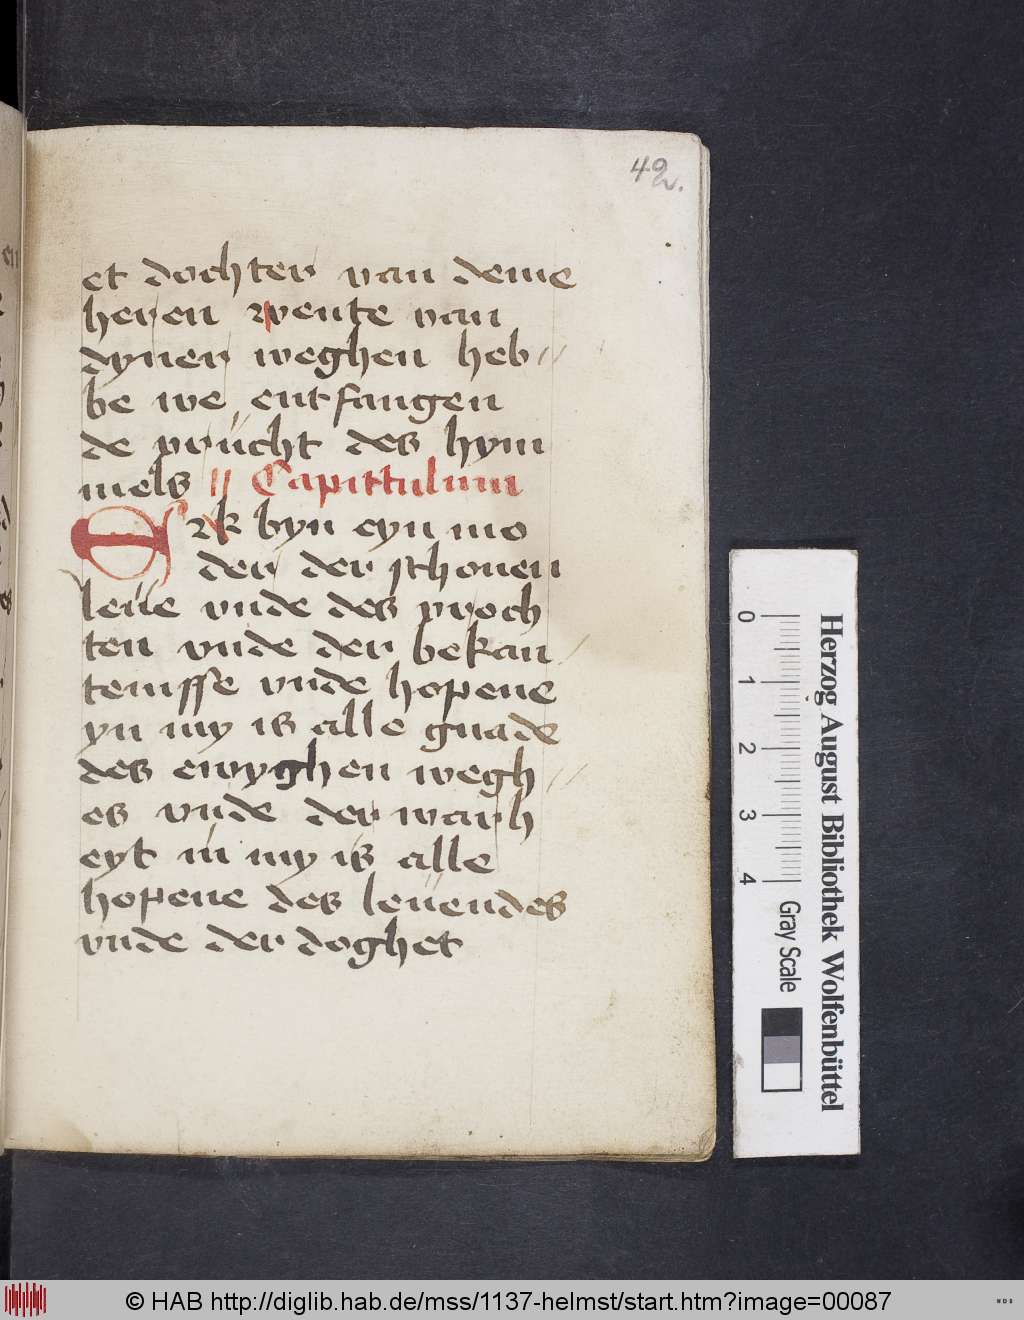 42.
et dochter van deme
heren wente van
dyner weghen heb//
be we entfangen
de vrücht des hym
mels // Capittulum
Jck byn eyn mo
der der schonen
leue vnde des vroch
ten vnde der bekan/
tenisse vnde hopene
yn my is alle gnade
des ewyghen wegh//
es vnde der warh
eyt in my is alle
hopene des leuendes
vnde der doghet
Herzog August Bibliothek Wolfenbüttel
0 1 2 3 4
Gray Scale
© HAB http://diglib.hab.de/mss/1137-helmst/start.htm?image=00087